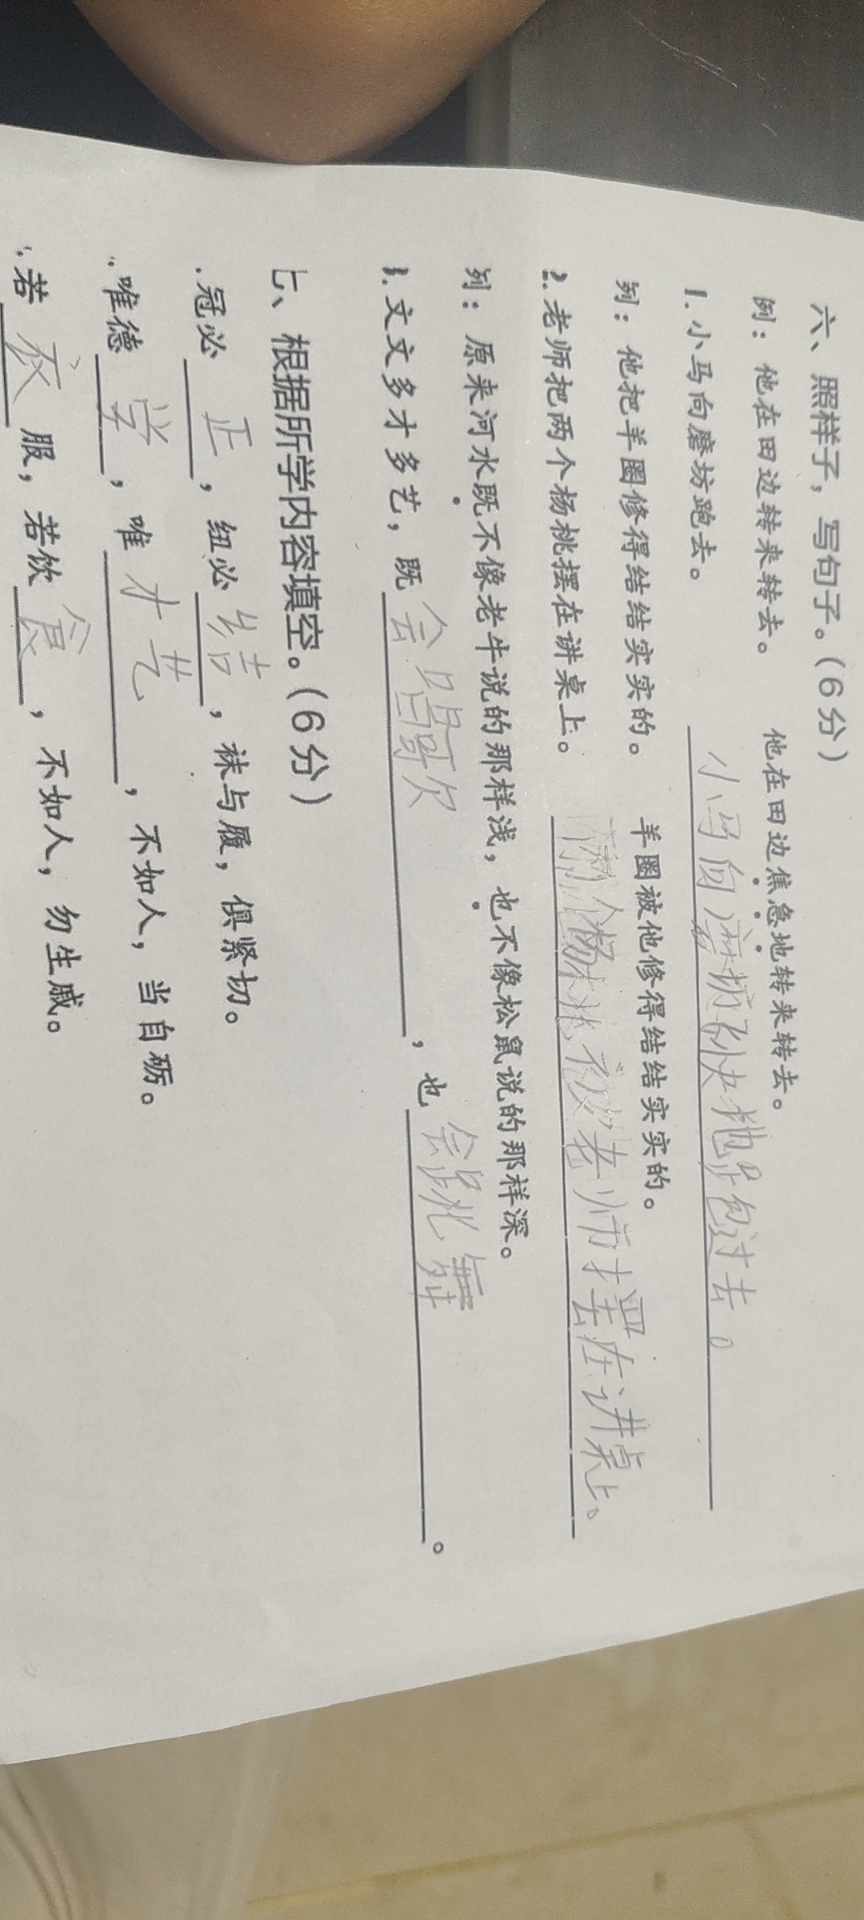 六、照样子，写句子。（6分）
例：他在田边转来转去。 他在田边焦急地转来转去。
1.小马向磨坊跑去。 小马向磨坊飞快地跑过去。
列：他把羊圈修得结结实实的。 羊圈被他修得结结实实的。
2.老师把两个杨桃摆在讲桌上。 两个杨桃被老师摆在讲桌上。
列：原来河水既不像老牛说的那样浅，也不像松鼠说的那样深。
3.文文多才多艺，既会唱歌，也会跳舞。
七、根据所学内容填空。（6分）
.冠必正，纽必结，袜与履，俱紧切。
.唯德学，唯才艺，不如人，当自砺。
.若衣服，若饮食，不如人，勿生戚。